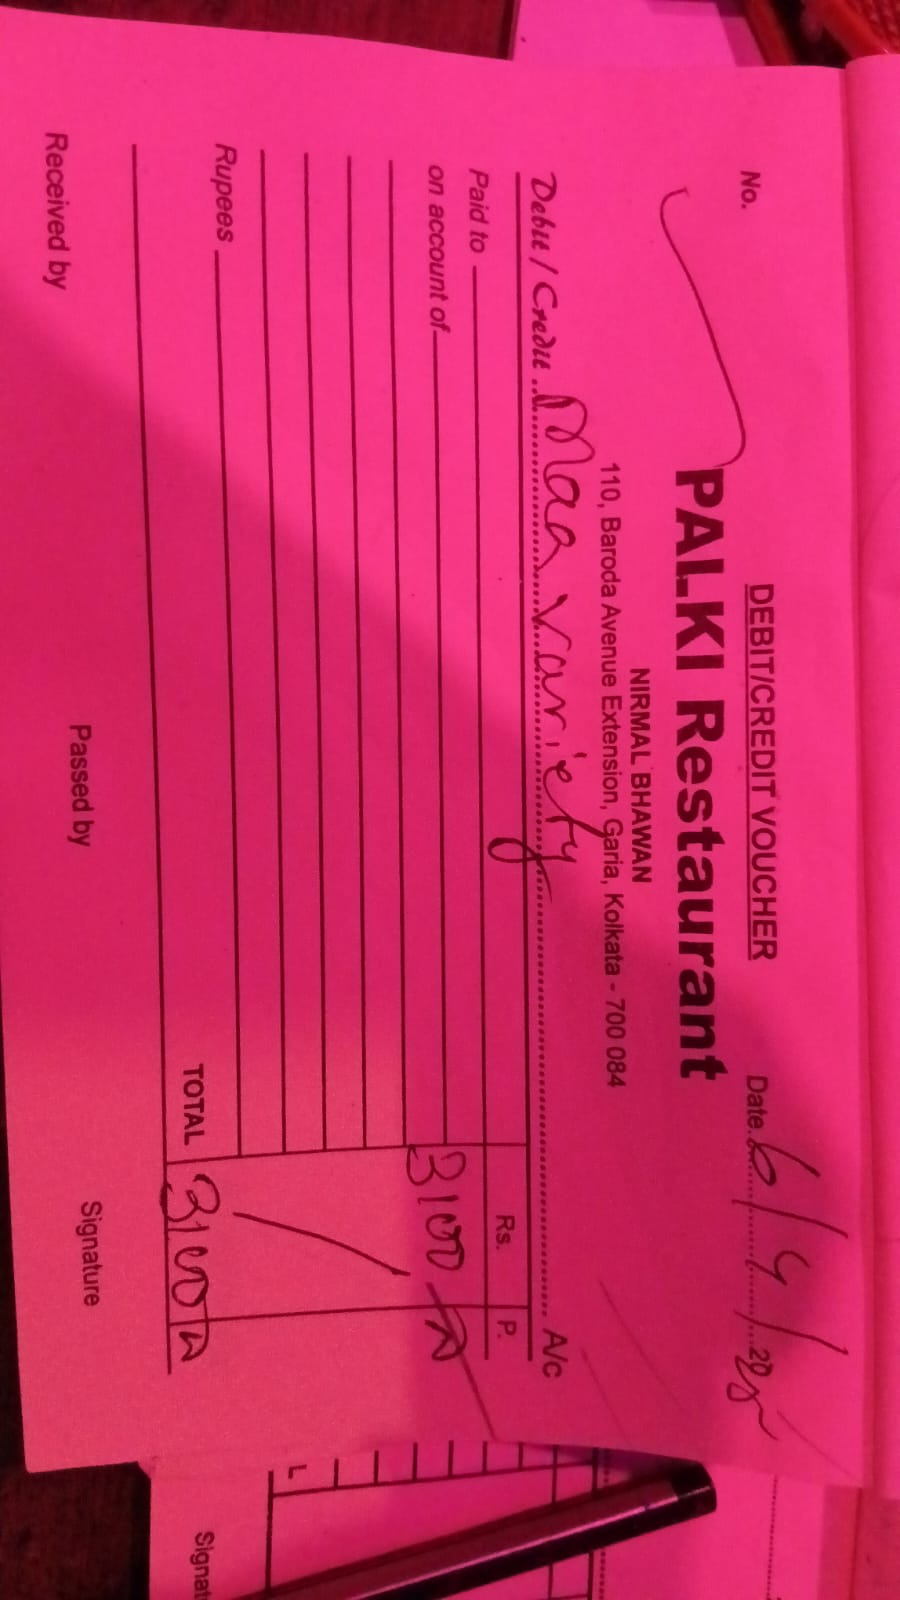 DEBIT/CREDIT VOUCHER
No. Date 6/4/20
PALKI Restaurant
NIRMAL BHAWAN
110, Baroda Avenue Extension, Garia, Kolkata - 700 084
Debit / Credit Maa variety A/c
Paid to Rs. P.
on account of 3100
Rupees TOTAL 3100
Received by Passed by Signature